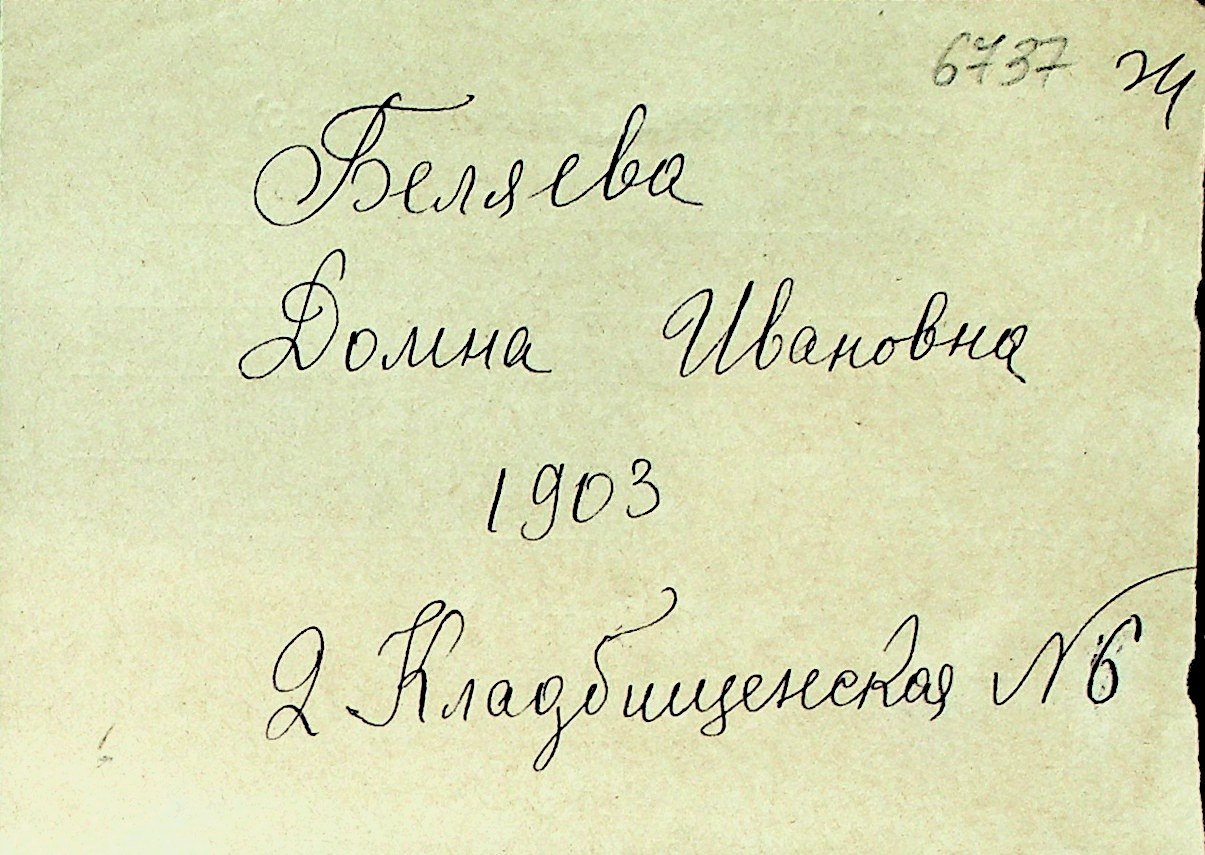 6737 Ж
Беляева
Домна Ивановна
1903
2 Кладбищенская № 6